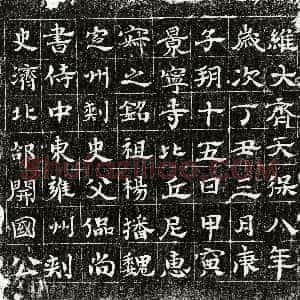 維大齊天保八年
歲次丁丑三月庚
子朔十五日甲寅
景寧寺比丘尼惠
之銘祖楊播魏
定州刾史父偘尚
書侍中東雍州刾
史濟北郡開國公